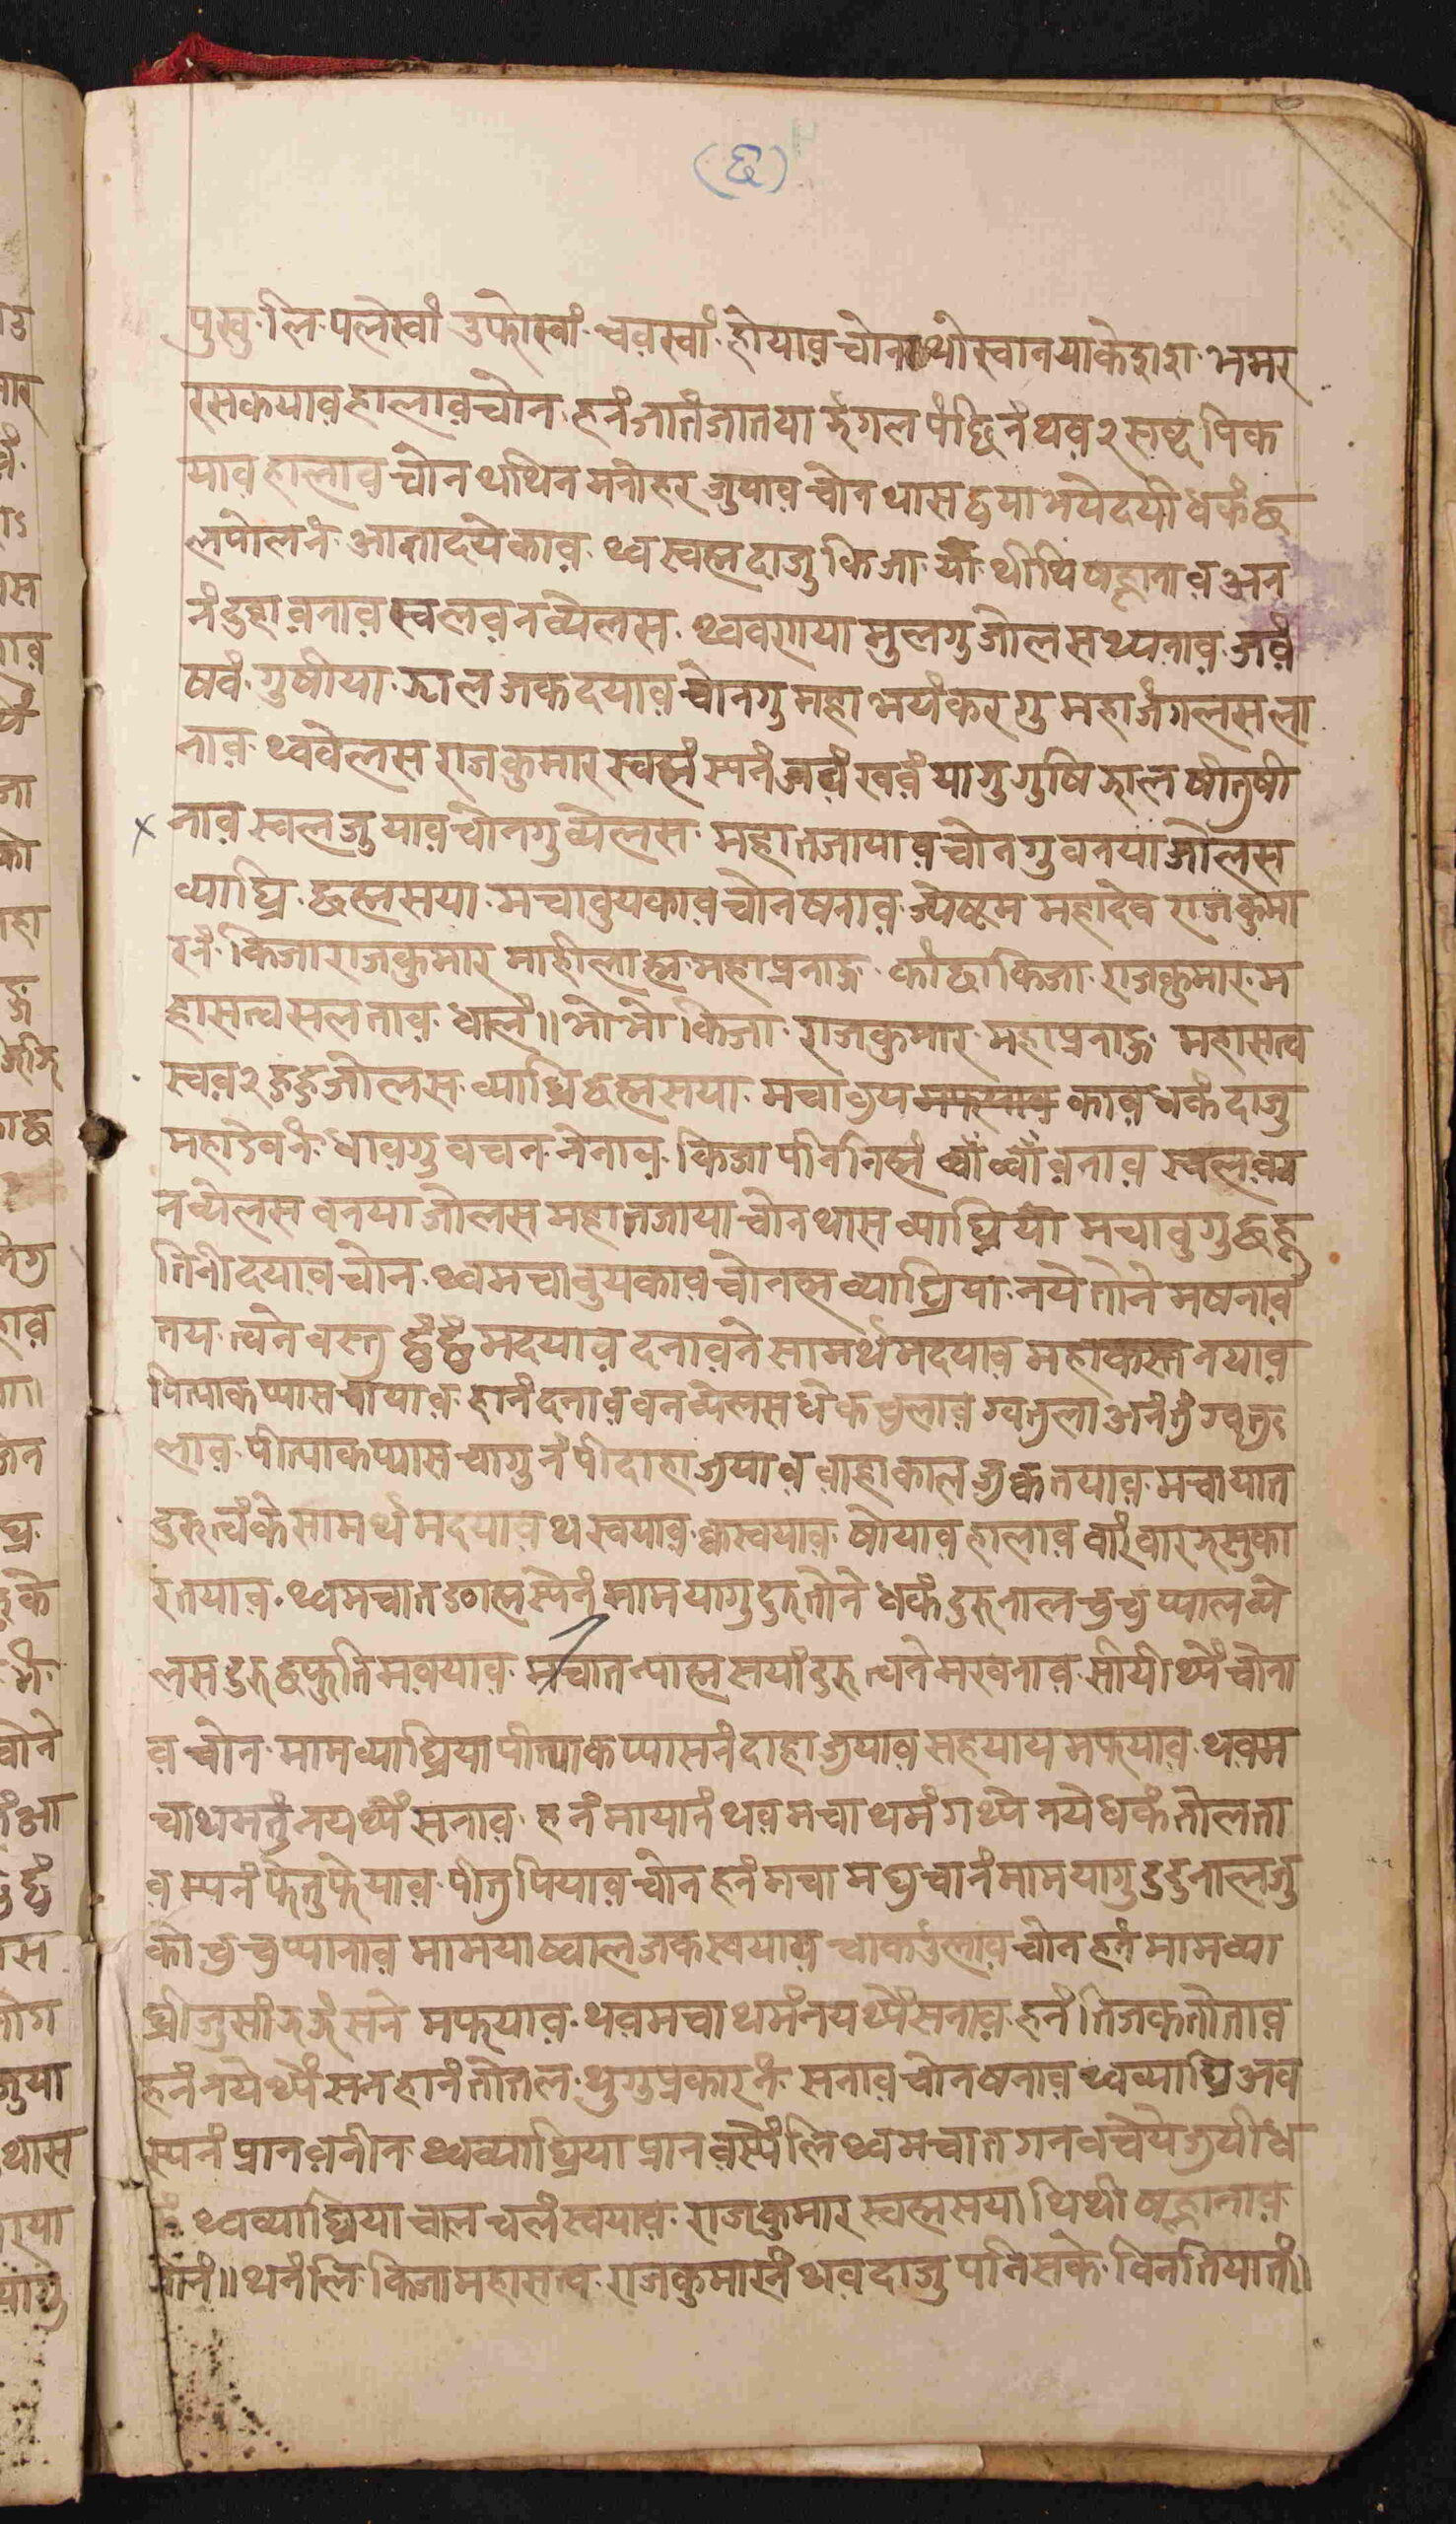 (६)
पुखु. लि. पलेस्वां उफोस्वां. चवस्वां. होयाव चोन थो स्वानयाके दादा. भमर
रसकयाव हालाव चोन. हनं जातं जातया झंगल पंछिनं थव २ सब्द पिक
याव हालाव चोन थथिन मनोहर जुयाव चोन थास छपा भयेदयी धकं छ
लपोलनं. आज्ञादयेकाव. थ्व स्वह्म दाजु किजा यों थीथि षह्लानाव अन
नं दुहावनाव स्वलवनव्येलस. थ्ववराया मुलगु जोलस थ्यनाव. जवं
षवं. गुषीया. झाल जक दयाव चोनगु महा भयंकरगु महाजंगलस ला
नाव. थ्ववेलस राजकुमार स्वह्मं स्यनं जवं खवं यागु गुषि झाल षीतुषी
नाव स्वलजुयाव चोनगु व्येलस. महातजायाव चोनगु वनया जोलस
व्याघ्रि. छह्मसया. मचावुयकाव चोन षनाव. ज्येष्टम महादेव राजकुमा
रनं. किजा राजकुमार माहीलाह्म. महाप्रनाद. कांछा किजा. राजकुमार. म
हासत्व सलताव. धालं॥ भो भो किजा. राजकुमार. महाप्रनाद. महासत्व
स्वव २ जोलस. व्याघ्रि छह्मसया. मचावुय काव धकं दाजु
महादेवनं. धावगु वचन. नेनाव. किजापीं ननिह्मं व्वां व्वां वनाव स्वलव
नव्येलस वनया जोलस महातजाया चोन थास व्याघ्रियो मचावुगु छह्नु
तिनी दयाव चोन. थ्व मचावुयकाव चोनह्म व्याघ्रिया. नये तोने मषनाव
तय. त्वने वस्तु छुं छुं मदयाव दनावने सामर्थ मदयाव महाकस्त नयाव
पित्याक प्यास चायाव. हानं दनाव वनव्येलस धेकचुलाव ग्वतुला अनंतुं ग्वतु
लाव. पीत्याक प्यास चागुनं षीदाहाजुयाव वाहाकालजुक तयाव. मचायात
दुरुत्वंके सामर्थ मदयाव थस्वयाव क्वस्वयाव. षोयाव हालाव वारंवार झसुका
रतयाव. थ्व मचातझाह्मस्येनं मामयागु दुरुतोने धकं दुरुनाल चुचुप्यालव्ये
लस दुरु छफुति मवयाव. मचात न्याह्मसयां दुरु त्वने मखनाव. सीयीथ्यें चोना
व चोन. माम व्याघ्रिया पीत्याक प्यासनं दाहाजुयाव सहयाय मफयाव. थव म
चा थमंतुं नयथ्यें सनाव. हनं मायानं थव मचा थमं गथ्ये नये धकं तोलता
व म्यनं फेतुफेयाव. पीतुपियाव चोन हनं मचा मछुचानं मामयागु दुदुनालजु
को चुचुप्यानाव मामया ष्वाल जक स्वयाव चाकउलाव चोन हनं माम व्या
घ्रीजुसी झझं सने मफयाव. थव मचा थमं नयथ्यें सनाव. हनं तिजक तोताव
हनं नयेथ्यें सन हानं तोतल. थुगु प्रकारनं. सनाव चोन षनाव थ्व व्याघ्रि अव
स्यनं प्रान वनीन थ्व व्याघ्रिया प्रान वस्येंलि थ्व मचात गन वचेये जुयी ध
कं. थ्व व्याघ्रिया चालचलं स्वयाव. राजकुमार स्वह्मसया थिथी षह्लानाव
चोनं॥ थनंलि. किजा महासत्व. राजकुमारनं थव दाजु पनिसके. विनतियातं॥